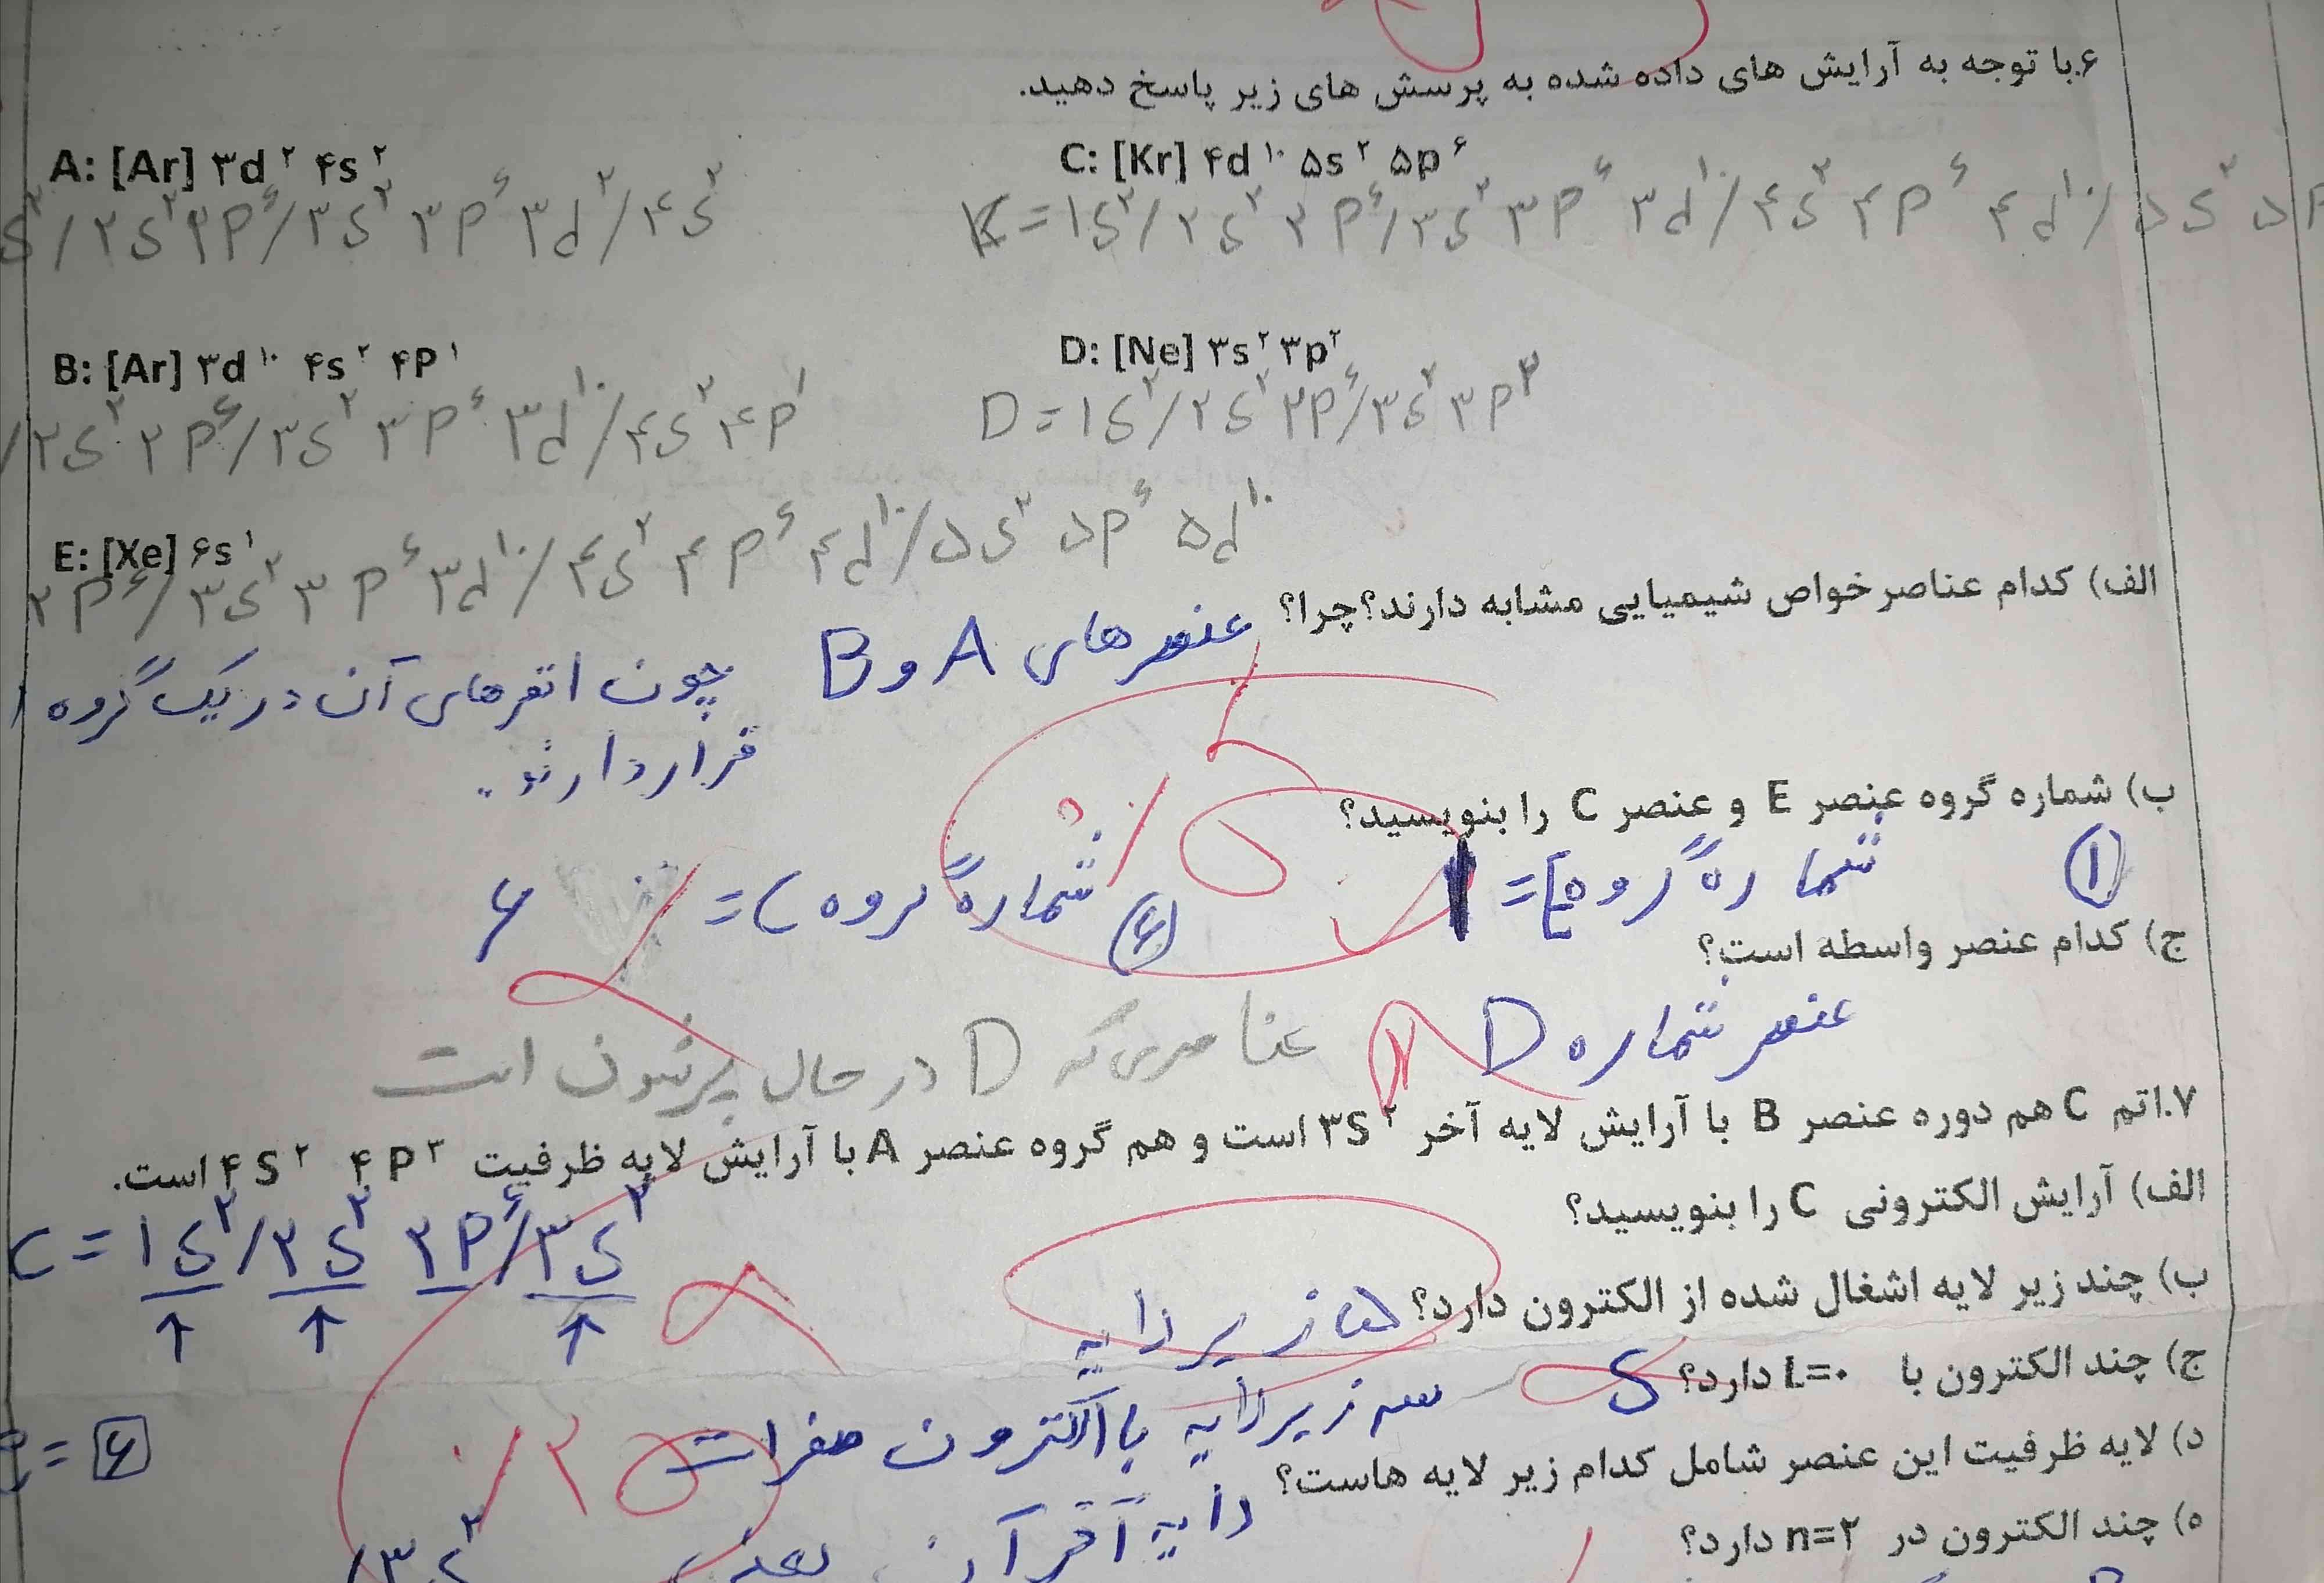 ۶.با توجه به آرایش های داده شده به پرسش های زیر پاسخ دهید.
A: [Ar] ۳d ۲ ۴s ۲
C: [Kr] ۴d ۱۰ ۵s ۲ ۵p ۶
S۲/۲S۲ ۲P۶/۳S۲ ۳P۶ ۳d۲/۴S۲
=۱S۲/۲S۲ ۲P۶/۳S۲ ۳P۶ ۳d۱۰/۴S۲ ۴P۶ ۴d۱۰/۵S۲ ۵P
B: [Ar] ۳d ۱۰ ۴s ۲ ۴P ۱
D: [Ne] ۳s ۲ ۳p ۲
/۲S۲ ۲P۶/۳S۲ ۳P۶ ۳d۱۰/۴S۲ ۴P۱
D=۱S۲/۲S۲ ۲P۶/۳S۲ ۳P۳
E: [Xe] ۶s ۱
۲P۶/۳S۲ ۳P۶ ۳d۱۰/۴S۲ ۴P۶ ۴d۱۰/۵S۲ ۵P۶ ۵d۱۰
الف) کدام عناصر خواص شیمیایی مشابه دارند؟چرا؟ عنصرهای A و B
چون اتم‌های آن در یک گروه
قرار دارند.
ب) شماره گروه عنصر E و عنصر C را بنویسید؟
① شماره گروه E= ۱
⑥ شماره گروه C= ۶
ج) کدام عنصر واسطه است؟
عنصر شماره D
عناصری که D در حال پرشدن است
۷.اتم C هم دوره عنصر B با آرایش لایه آخر ۳S ۲ است و هم گروه عنصر A با آرایش لایه ظرفیت ۴S ۲ ۴P ۳ است.
الف) آرایش الکترونی C را بنویسید؟
C=۱S۲/۲S۲ ۲P۶/۳S۲
ب) چند زیر لایه اشغال شده از الکترون دارد؟ ۵ زیرلایه
ج) چند الکترون با L=۰ دارد؟ S سه زیرلایه با الکترون صفر است
= ۶
د) لایه ظرفیت این عنصر شامل کدام زیر لایه هاست؟
لایه آخر آن یعنی ۳S۲
ه) چند الکترون در n=۲ دارد؟